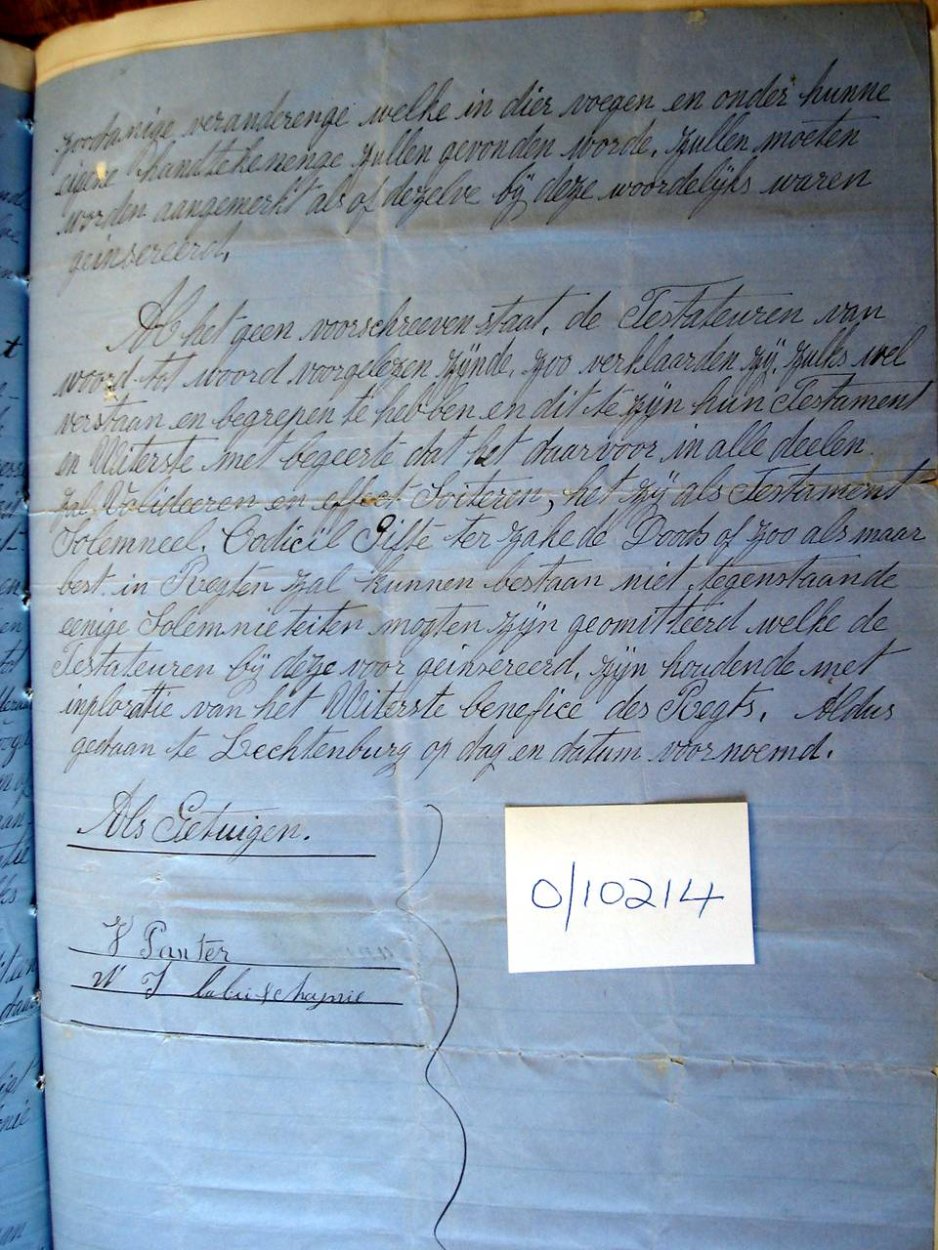 zoodanige veranderenge welke in dier voegen en onder hunne
eigene handtekenenge zullen gevonden worde, zullen moeten
worden aangemerkt als of dezelve bij deze woordelijks waren
geinsereerd.
Al het geen voorschreeven staat, de Testateuren van
woord tot woord voorgelezen zijnde, zoo verklaarden zij, zulks wel
verstaan en begrepen te hebben en dit te zijn hun Testament
en Uiterste met begeerte dat het daarvoor in alle deelen
zal Valideeren en effect Soiteren, het zij als Testament
Solemneel, Codicil Gifte ter zake de Doods of zoo als maar
best in Regten zal kunnen bestaan niet tegenstaande
eenige Solemnieteiten mogten zijn geomitteerd welke de
Testateuren bij deze voor geinsereerd, zijn houdende met
inploratie van het Uiterste benefice des Regts. Aldus
gedaan te Lechtenburg op dag en datum voornoemd.
Als Getuigen.
Panter
W J
0/10214